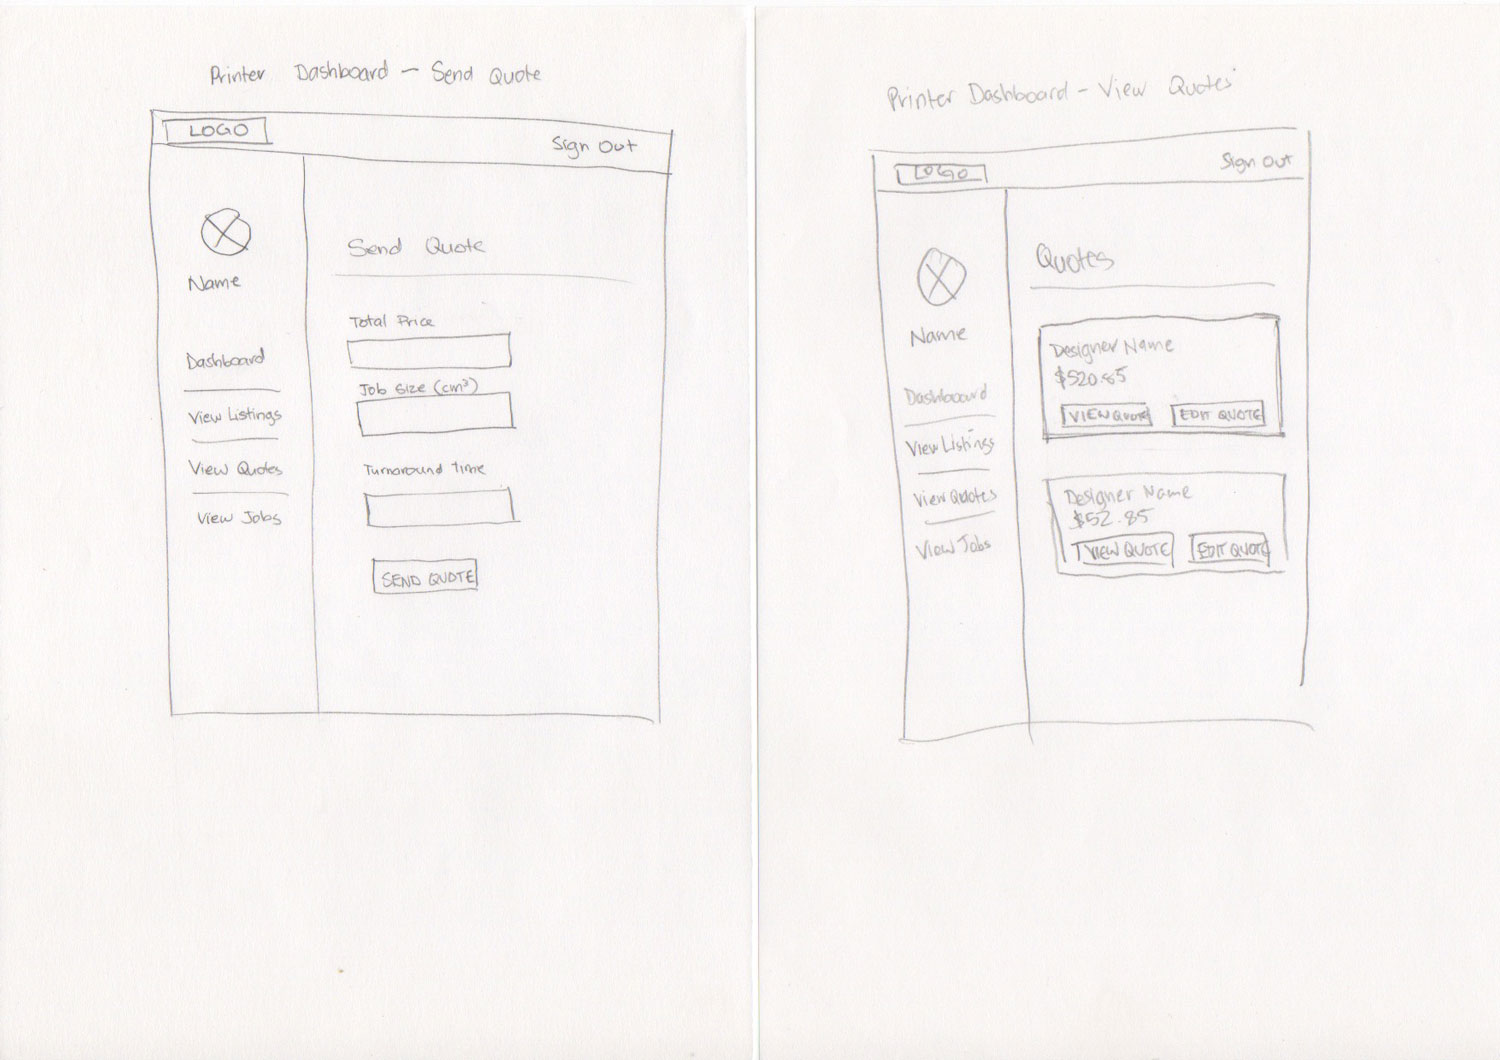 Printer Dashboard - Send Quote
LOGO
Sign Out
Name
Dashboard
View Listings
View Quotes
View Jobs
Send Quote
Total Price
Job Size (cm³)
Turnaround time
SEND QUOTE
Printer Dashboard - View Quotes
LOGO
Sign Out
Name
Dashboard
View Listings
View Quotes
View Jobs
Quotes
Designer Name
$520.85
VIEW QUOTE EDIT QUOTE
Designer Name
$52.85
VIEW QUOTE EDIT QUOTE